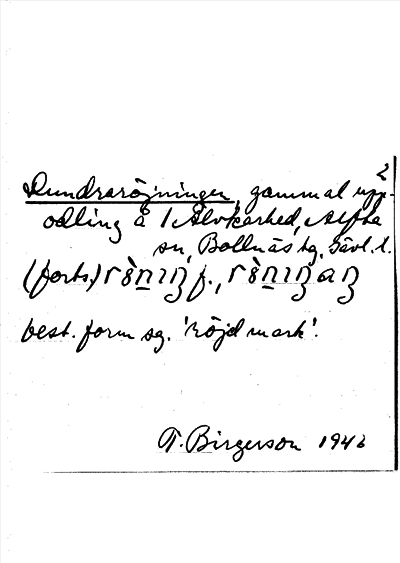 2
Dundraröjningen, gammal upp-
odling å 1 Älvkarhed, Alfta
sn, Bollnäs tg, Gävl. l.
(forts.) f.,
best. form sg. 'röjd mark'.
T. Birgerson 1942